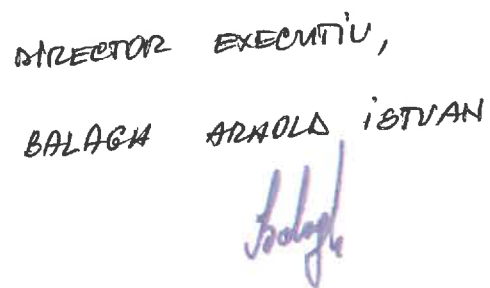 DIRECTOR EXECUTIV,
BALAGH ARNOLD ISTVAN
Balogh